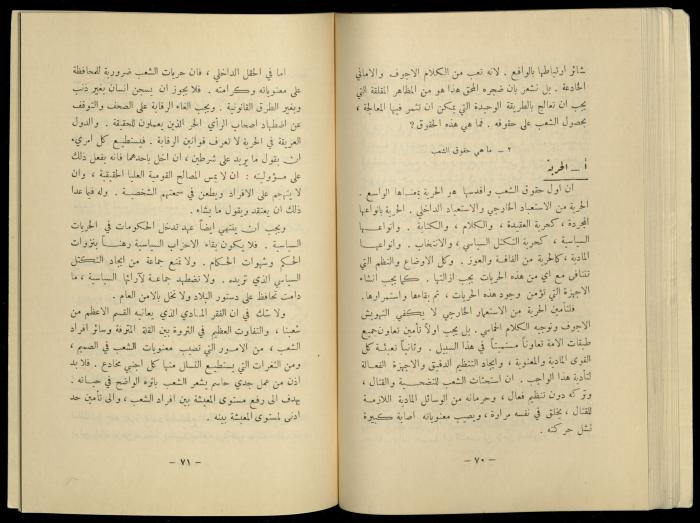 شائر ارتباطها بالواقع . لانه تعب من الكلام الاجوف والاماني
الخادعة . بل نشعر بان ضجره المحق هذا هو من المظاهر المقلقة التي
يجب ان تعالج بالطريقة الوحيدة التي يمكن ان تثمر فيها المعالجة ،
بحصول الشعب على حقوقه . فما هي هذه الحقوق ؟
٢ – ما هي حقوق الشعب
أ – الحرية
ان اول حقوق الشعب واقدسها هو الحرية بمعناها الواسع .
الحرية من الاستعباد الخارجي والاستعباد الداخلي . الحرية بانواعها
المجردة ، كحرية العقيدة ، والكلام ، والكتابة . وانواعها
السياسية ، كحرية التكتل السياسي ، والانتخاب . وانواعها
المادية ، كالحرية من الفاقة والعوز . وكل الاوضاع والنظم التي
تتنافى مع اي من هذه الحريات يجب ازالتها . كما يجب انشاء
الاجهزة التي تؤمن وجود هذه الحريات ، ثم بقاءها واستمرارها .
فلتأمين الحرية من الاستعمار الخارجي لا يكفي التهويش
الاجوف وتوجيه الكلام الحماسي . بل يجب اولاً تأمين تعاون جميع
طبقات الامة تعاوناً مستميتاً في هذا السبيل . وثانياً تعبئة كل
القوى المادية والمعنوية ، وايجاد التنظيم الدقيق والاجهزة الفعالة
لتأدية هذا الواجب . ان استحثاث الشعب للتضحية والقتال ،
وتركه دون تنظيم فعال ، وحرمانه من الوسائل المادية اللازمة
للقتال ، يخلق في نفسه مرارة ، ويصيب معنوياته اصابة كبيرة
تشل حركته .
– ٧٠ –
اما في الحقل الداخلي ، فان حريات الشعب ضرورية للمحافظة
على معنوياته وكرامته . فلا يجوز ان يسجن انسان بغير ذنب
وبغير الطرق القانونية . ويجب الغاء الرقابة على الصحف والتوقف
عن اضطهاد اصحاب الرأي الحر الذين يعملون للحقيقة . والدول
العريقة في الحرية لا تعرف قوانين الرقابة . فيستطيع كل امرىء
ان يقول ما يريد على شرطين ، ان اخل باحدهما فانه يفعل ذلك
على مسؤوليته : ان لا يمس المصالح القومية العليا الحقيقية ، وان
لا يتهجم على الافراد ويطعن في سمعتهم الشخصية . وله فيما عدا
ذلك ان يعتقد ويقول ما يشاء .
ويجب ان ينتهي ايضاً عهد تدخل الحكومات في الحريات
السياسية . فلا يكون بقاء الاحزاب السياسية رهناً بنزوات
الحكم وشهوات الحكام . ولا تمنع جماعة من ايجاد التكتل
السياسي الذي تريده . ولا تضطهد جماعة لآرائها السياسية ، ما
دامت تحافظ على دستور البلاد ولا تخل بالامن العام .
ولا شك في ان الفقر المادي الذي يعانيه القسم الاعظم من
شعبنا ، والتفاوت العظيم في الثروة بين القلة المترفة وسائر افراد
الشعب ، من الامور التي تصيب معنويات الشعب في الصميم ،
ومن الثغرات التي يستطيع التسلل منها كل اجنبي مخادع . فلا بد
اذن من عمل جدي حاسم يشعر الشعب باثره الواضح في حياته .
يهدف الى رفع مستوى المعيشة بين افراد الشعب ، والى تأمين حد
ادنى لمستوى المعيشة بينه .
– ٧١ –